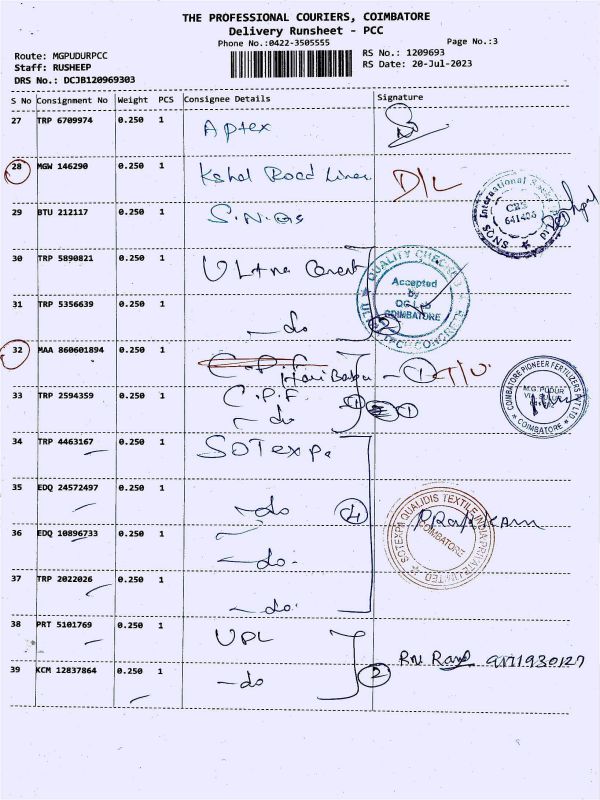 THE PROFESSIONAL COURIERS, COIMBATORE
Delivery Runsheet - PCC
Phone No.:0422-3505555
Page No.:3
Route: MGPUDURPCC
RS No.: 1209693
Staff: RUSHEEP
RS Date: 20-Jul-2023
DRS No.: DCJB120969303
S No Consignment No Weight PCS Consignee Details Signature
27 TRP 6709974 0.250 1 Aptex
28 MGW 146290 0.250 1 Road Lines D/L
29 BTU 212117 0.250 1 S.N.Qs
International
SONS
641406
30 TRP 5890821 0.250 1 Ultra
QUALITY CHECKED
Accepted
by
QC Lab
COIMBATORE
ULTRATECH CONCRETE
31 TRP 5356639 0.250 1 -do 2
32 MAA 860601894 0.250 1 C.P.F
Hari Babu - 1
33 TRP 2594359 0.250 1 C.P.F
-do 1 = 1
COIMBATORE PIONEER FERTILIZERS PVT LTD
M.G. PUDUR
COIMBATORE
34 TRP 4463167 0.250 1 SOTexpa
35 EDQ 24572497 0.250 1 -do 4
SOTEXPA QUALIDIS TEXTILE INDIA PRIVATE LIMITED
COIMBATORE
36 EDQ 10896733 0.250 1 -do-
37 TRP 2022026 0.250 1 -do-
38 PRT 5101769 0.250 1 UPL
39 KCM 12837864 0.250 1 -do 2